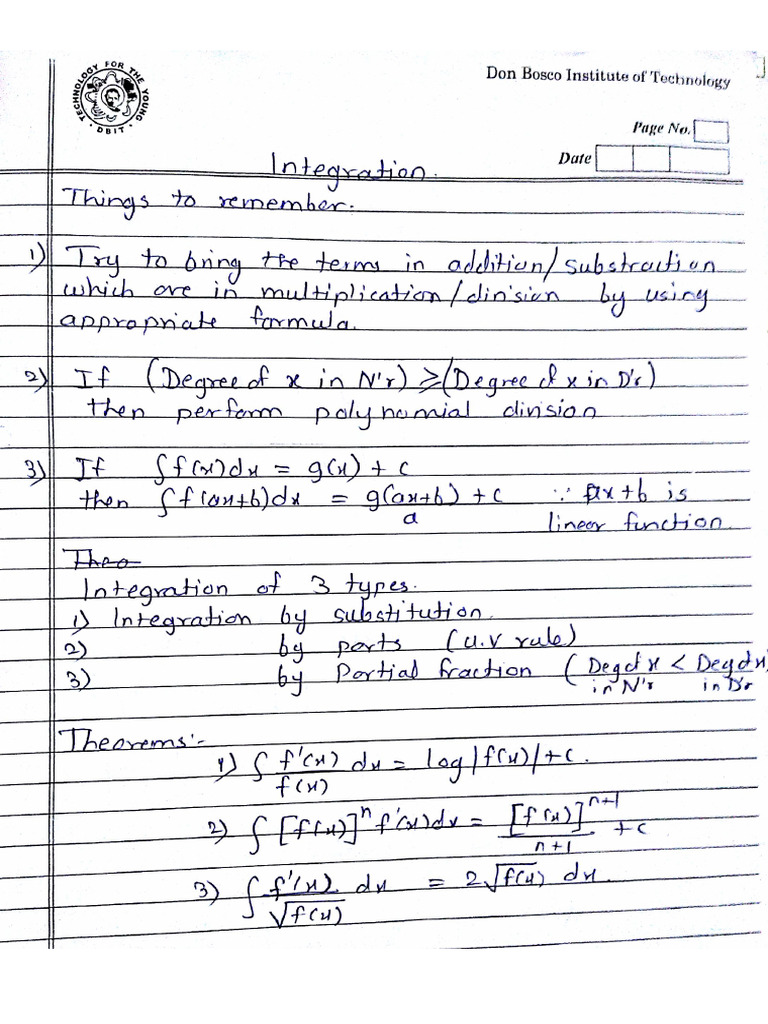 TECHNOLOGY FOR THE YOUNG
• DBIT •
Don Bosco Institute of Technology
Page No.
Date
Integration.
Things to remember.
1) Try to bring the terms in addition/substraction
which are in multiplication/division by using
appropriate formula.
2) If (Degree of x in N'r) ≥ (Degree of x in D'r)
then perform polynomial division
3) If ∫f(x)dx = g(x) + c
then ∫f(ax+b)dx = g(ax+b)/a + c ∵ ax+b is
linear function.
Theo
Integration of 3 types.
1) Integration by substitution.
2) by parts (u.v rule)
3) by Partial fraction (Deg of x in N'r < Deg of x in D'r
Theorems:-
1) ∫ f'(x)/f(x) dx = log|f(x)|+c.
2) ∫ [f(x)]ⁿ f'(x)dx = [f(x)]ⁿ⁺¹/n+1 + c
3) ∫ f'(x)/√f(x) dx = 2√f(x) dx.